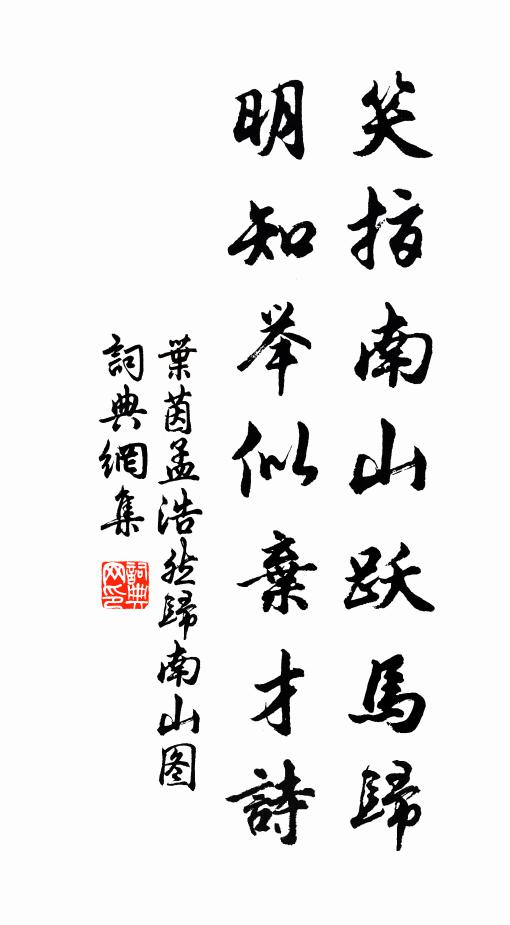 笑指南山跃馬歸
明知举似棄才詩
葉茵孟浩然歸南山图
詞典網集
詞典网印